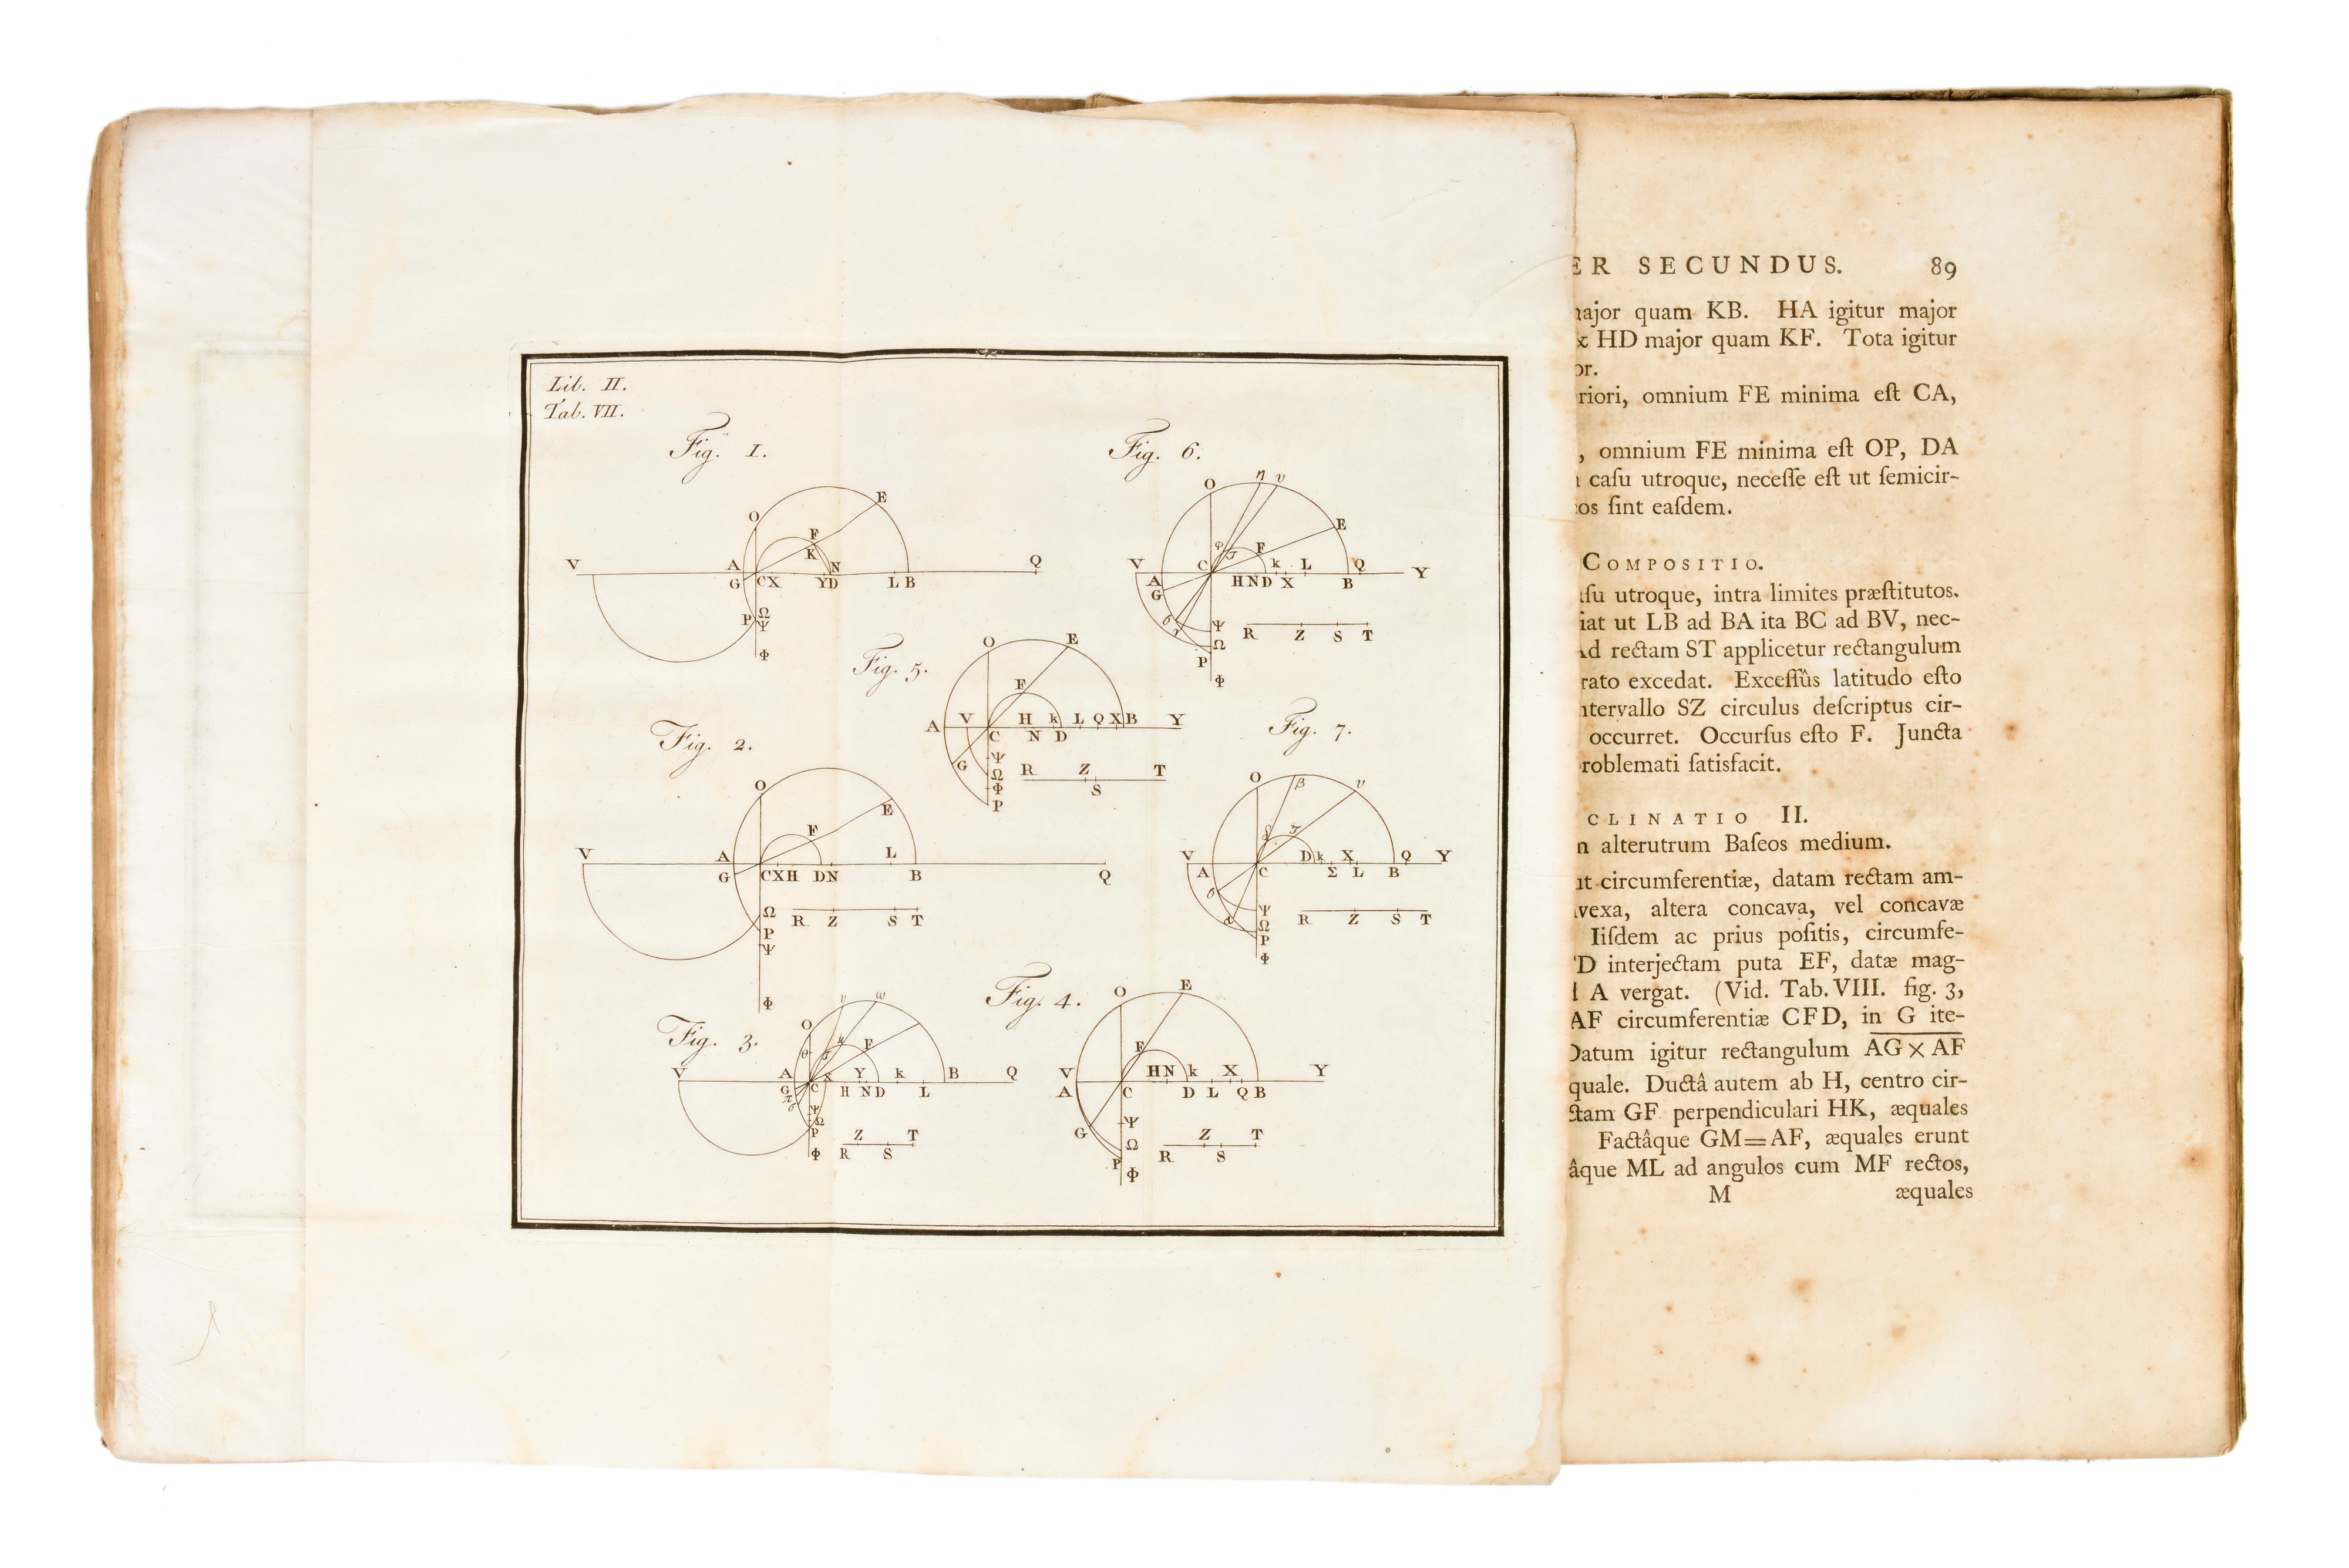 Lib. II.
Tab. VII.
Fig. 1.
E
O
F
K
V A N Q
G CX YD L B
P Ω
Ψ
Φ
Fig. 6.
η υ
O
E
φ σ F
V C k L Q Y
A H N D X B
G
θ γ
Ψ R Z S T
Ω
P
Φ
Fig. 5.
O E
F
A V H k L Q X B Y
C N D
G Ψ R Z T
Ω
Φ S
P
Fig. 2.
O
E
F
V A L
G C X H D N B Q
Ω
P R Z S T
Ψ
Φ
Fig. 7.
O β υ
δ σ
V D k X Q Y
A C Σ L B
θ
α Ψ R Z S T
Ω
P
Φ
Fig. 3.
υ ω
O
θ F
V A X Y k B Q
G C H N D L
π σ
Ψ
Ω
P Z T
Φ R S
Fig. 4.
O E
F
V H N k X Y
A C D L Q B
Ψ
G Ω Z T
P R S
Φ
ER SECUNDUS. 89
major quam KB. HA igitur major
& HD major quam KF. Tota igitur
or.
riori, omnium FE minima eſt CA,
, omnium FE minima eſt OP, DA
caſu utroque, neceſſe eſt ut ſemicir-
os ſint eaſdem.
COMPOSITIO.
ſu utroque, intra limites præſtitutos.
iat ut LB ad BA ita BC ad BV, nec-
Ad rectam ST applicetur rectangulum
rato excedat. Exceſſûs latitudo eſto
ntervallo SZ circulus deſcriptus cir-
occurret. Occurſus eſto F. Juncta
roblemati ſatisfacit.
CLINATIO II.
n alterutrum Baſeos medium.
t circumferentiæ, datam rectam am-
vexa, altera concava, vel concavæ
Iiſdem ac prius poſitis, circumfe-
D interjectam puta EF, datæ mag-
A vergat. (Vid. Tab. VIII. fig. 3,
AF circumferentiæ CFD, in G ite-
Datum igitur rectangulum AG × AF
quale. Ductâ autem ab H, centro cir-
ctam GF perpendiculari HK, æquales
Factâque GM=AF, æquales erunt
âque ML ad angulos cum MF rectos,
M æquales